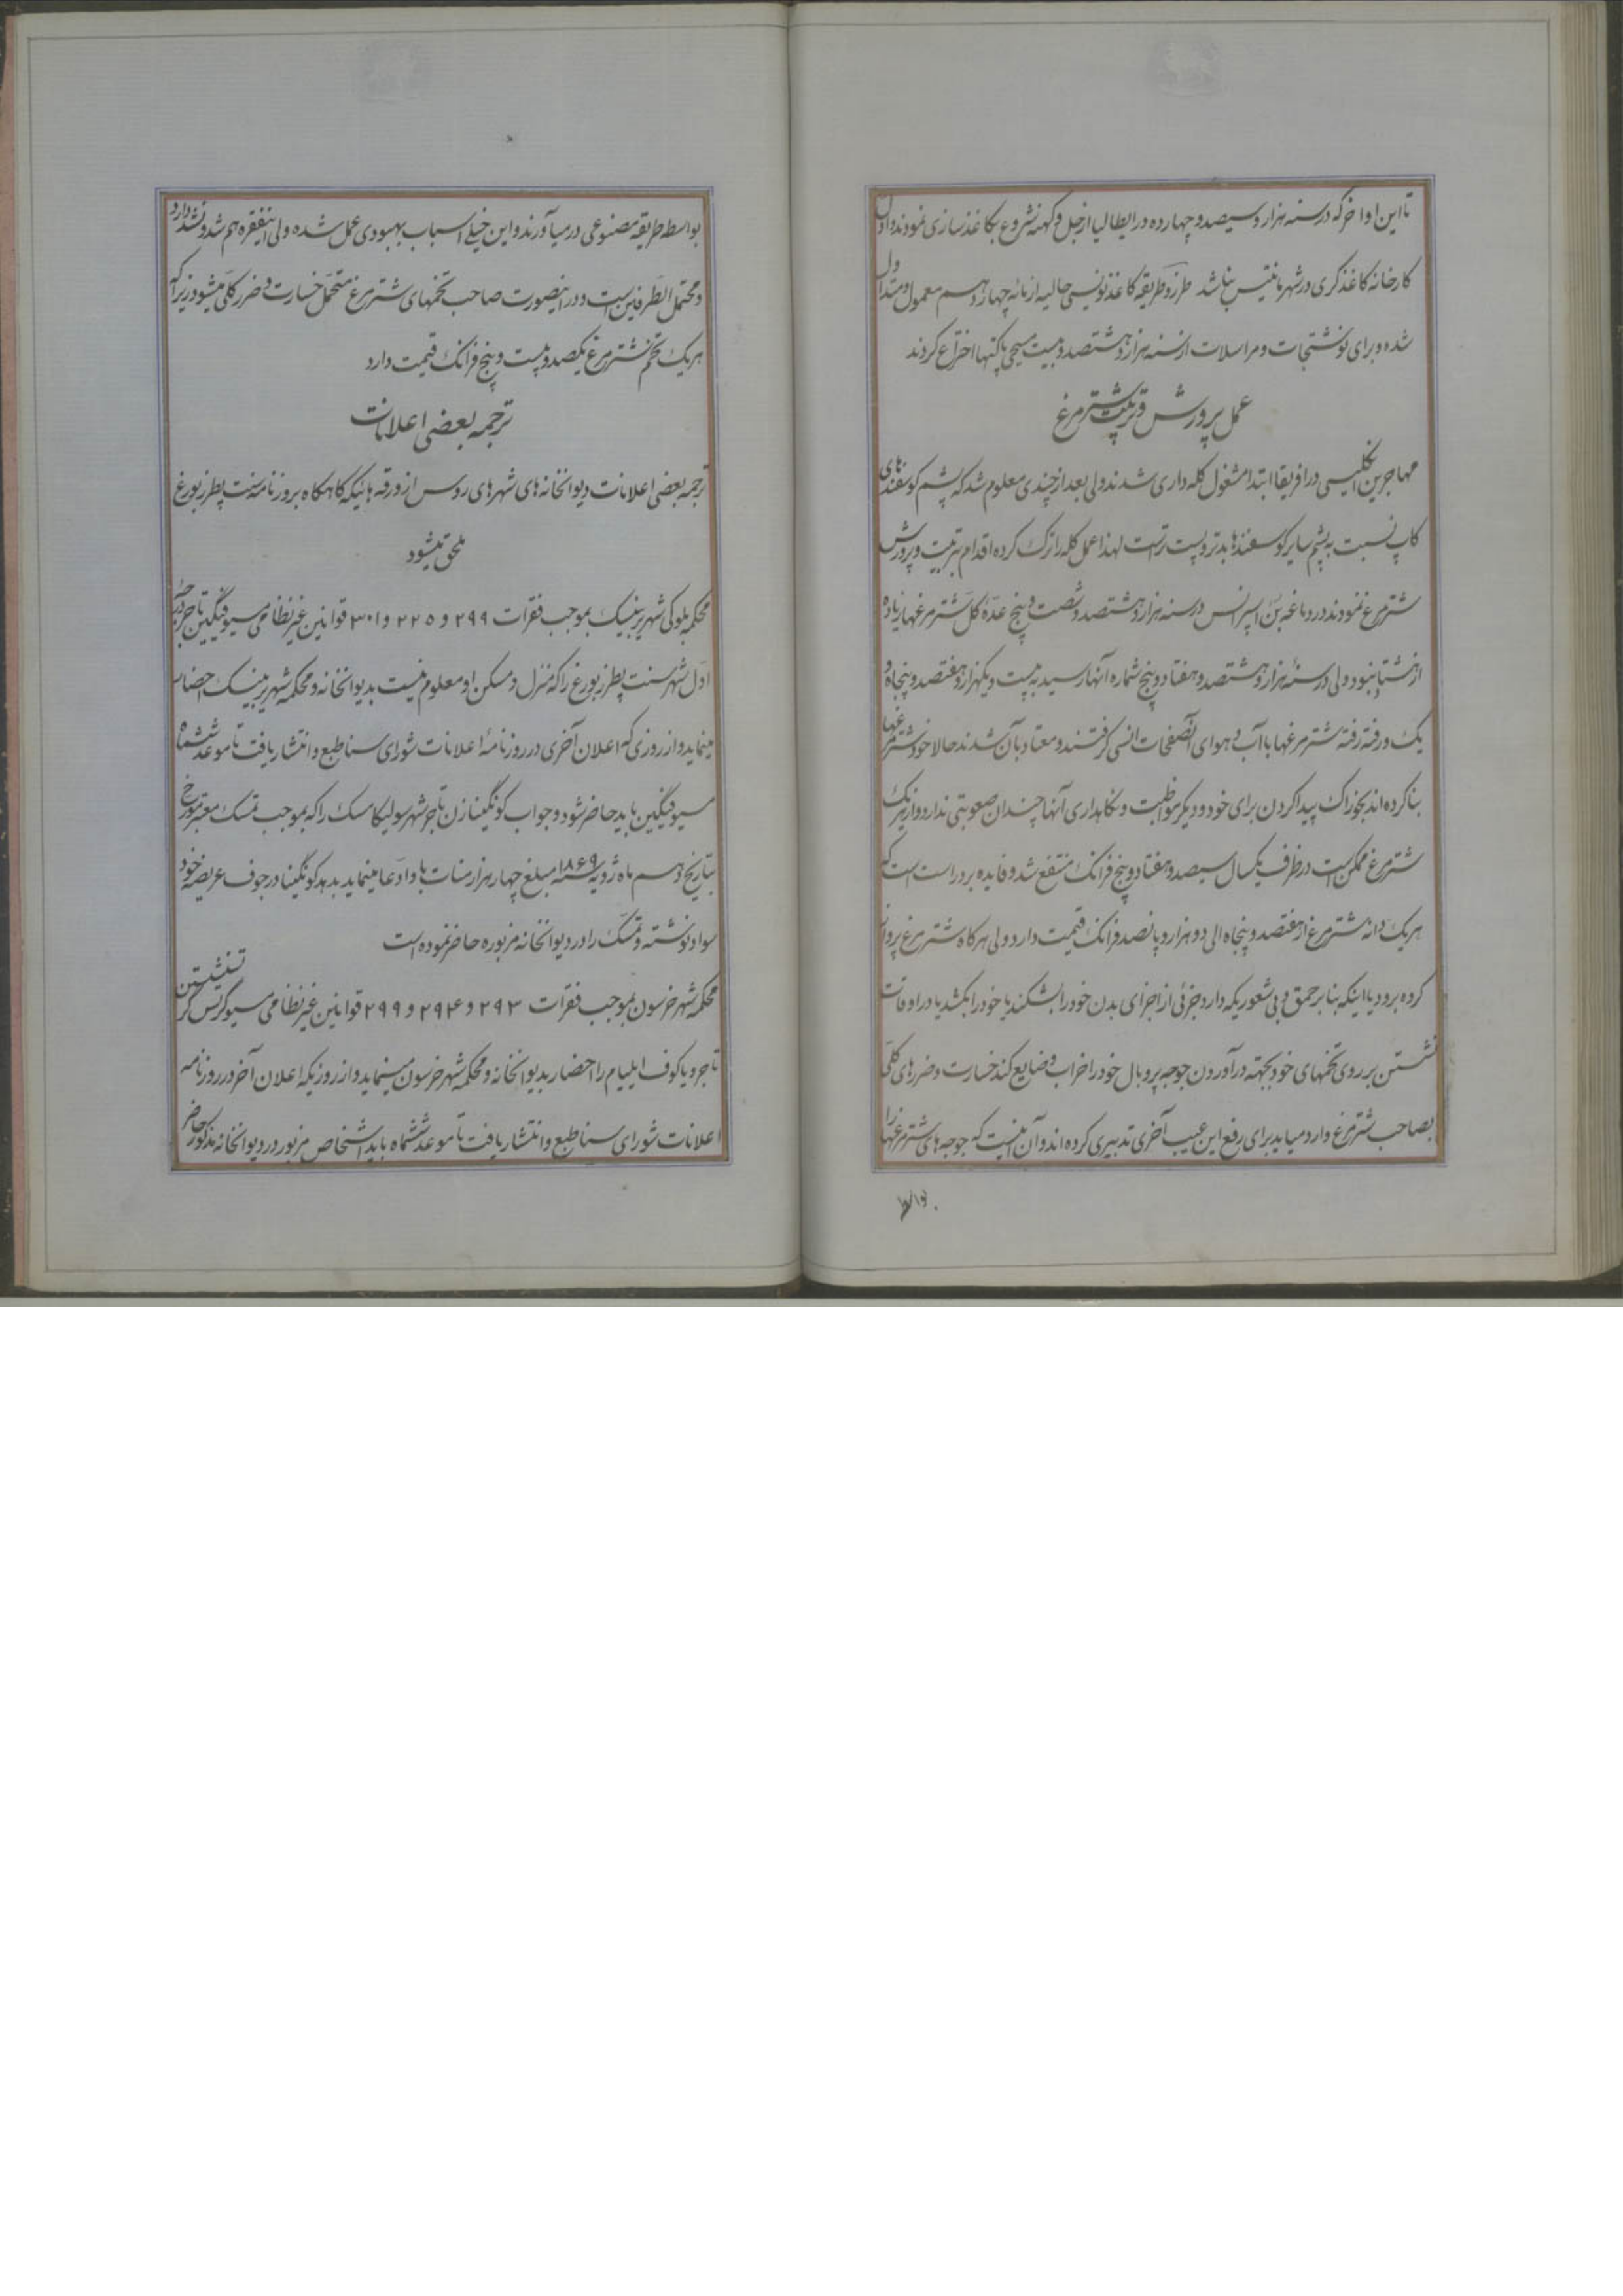 تا این اواخر که در سنه هزار و سیصد و چهارده در ایطالیا از جل و کهنه شروع بکاغذ سازی نمودند و اول
کارخانه کاغذ گری در شهر پا بنا شد طرز و طریقه کاغذ نویسی حالیه از مائه چهاردهم معمول و متداول
شده و برای نوشتجات و مراسلات از سنه هزار و هشتصد و بیست مسیحی پاکتها اختراع کردند
عمل پرورش و تربیت شتر مرغ
مهاجرین انگلیسی در افریقا ابتدا مشغول گله داری شدند ولی بعد از چندی معلوم شد که پشم گوسفندهای
کاپ نسبت به پشم سایر گوسفندها بدتر و پست تر است لهذا عمل گله را ترک کرده اقدام بتربیت و پرورش
شتر مرغ نمودند در دماغه بن اسپرانس در سنه هزار و هشتصد و شصت و پنج عده کل شتر مرغها زیاده
از هشتاد نبود ولی در سنه هزار و هشتصد و هفتاد و پنج شماره آنها رسید به بیست و یکهزار و هفتصد و پنجاه و
یک و رفته رفته شتر مرغها با آب و هوای آنصفحات انسی گرفتند و معتاد بآن شدند حالا خود شتر مرغها
بنا کرده اند بخوراک پیدا کردن برای خود و دیگر مواظبت و نگاهداری آنها چندان صعوبتی ندارد و از هر یک
شتر مرغ ممکن است در ظرف یکسال سیصد و هفتاد و پنج فرانک منتفع شد و فایده برد راست است که
هر یک دانه شتر مرغ از هفتصد و پنجاه الی دو هزار و پانصد فرانک قیمت دارد ولی هر گاه شتر مرغ پرواز
کرده برود یا اینکه بنا بر حمق و بی شعوریکه دارد جزئی از اجزای بدن خود را بشکند یا خود را بکشد یا در اوقات
نشستن بر روی تخمهای خود بجهته در آوردن جوجه پر و بال خود را خراب و ضایع کند خسارت و ضررهای کلی
بصاحب شتر مرغ وارد میاید برای رفع این عیب آخری تدبیری کرده اند و آن اینست که جوجه های شتر مرغها را
بواسطه
بواسطه طریقه مصنوعی در میآورند و این خیلی اسباب بهبودی عمل شده ولی اینفقره هم شد و نشد دارد
و محتمل الطرفین است و در اینصورت صاحب تخمهای شتر مرغ متحمل خسارت و ضرر کلی میشود زیرا که
هر یک تخم شتر مرغ یکصد و بیست و پنج فرانک قیمت دارد
ترجمه بعضی اعلانات
ترجمه بعضی اعلانات دیوانخانه های شهرهای روس از ورقه هائیکه گاه گاه بروزنامه سنت پطرزبورغ
ملحق میشود
محکمه بلوکی شهر بموجب فقرات ۲۹۹ و ۲۲۵ و ۳۰۱ قوانین غیر نظامی مسیو تاجر درجه
اول شهر سنت پطرزبورغ را که منزل و مسکن او معلوم نیست بدیوانخانه و محکمه شهر احضار
مینماید و از روزی که اعلان آخری در روزنامه اعلانات شورای سنا طبع و انتشار یافت تا موعد ششماه
مسیو باید حاضر شود و جواب زن تاجر شهر را که بموجب تمسک معتبر مورخ
بتاریخ دهم ماه ژویه سنه ۱۸۶۹ مبلغ چهار هزار منات با و ادعا مینماید بدهد در جوف عریضه خود
سواد نوشته و تمسک را در دیوانخانه مزبوره حاضر نموده است
محکمه شهر خرسون بموجب فقرات ۲۹۳ و ۲۹۴ و ۲۹۹ قوانین غیر نظامی مسیو
تاجر و یاکوف ایلیام را احضار بدیوانخانه و محکمه شهر خرسون مینماید و از روزیکه اعلان آخر در روزنامه
اعلانات شورای سنا طبع و انتشار یافت تا موعد ششماه باید اشخاص مزبور در دیوانخانه مذکور حاضر